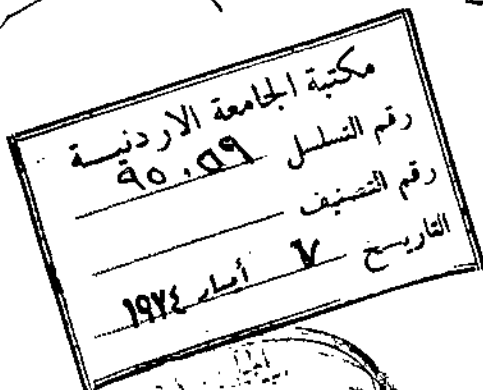 مكتبة الجامعة الاردنيــة
رقم التسلسل ٩٥٠٥٩
رقم التصنيف
التاريــخ ٧ أيار ١٩٧٤